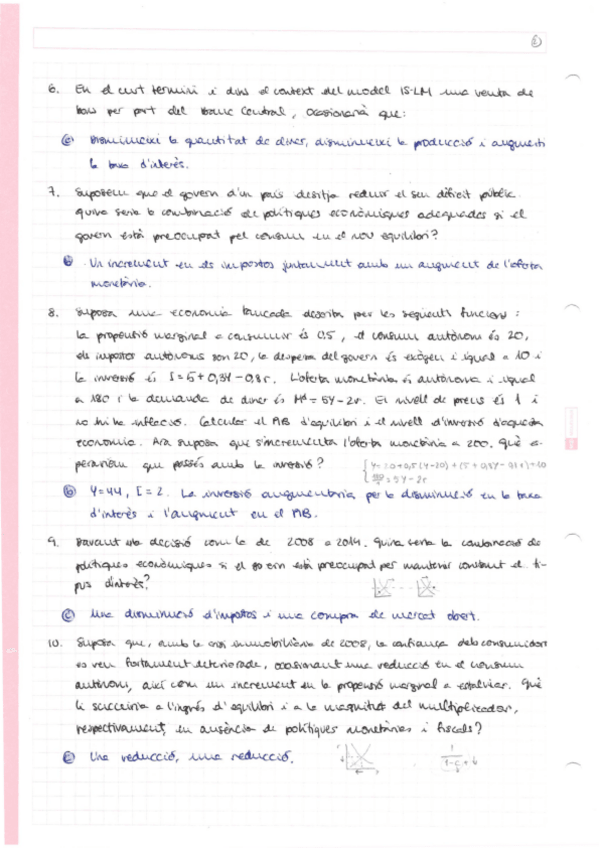 6. En el curt termini i dins el context del model IS-LM una venta de
bons per part del Banc Central, ocasionarà que:
c) Disminueixi la quantitat de diner, disminueixi la producció i augmenti
la taxa d'interès.
7. Suposem que el govern d'un país desitja reduir el seu dèficit públic.
Quina seria la combinació de polítiques econòmiques adequades si el
govern està preocupat pel consum en el nou equilibri?
b) Un increment en els impostos juntament amb un augment de l'oferta
monetària.
8. Suposa una economia tancada descrita per les següents funcions:
la propensió marginal a consumir és 0,5, el consum autònom és 20,
els impostos autònoms son 20, la despesa del govern és exògen i igual a 10 i
la inversió és I = 5 + 0,3Y - 0,8r. L'oferta monetària és autònoma i igual
a 180 i la demanda de diner és Mᵈ = 5Y - 2r. El nivell de preus és 1 i
no hi ha inflació. Calcular el PIB d'equilibri i el nivell d'inversió d'aquesta
economia. Ara suposa que s'incrementa l'oferta monetària a 200. Què
esperaríem que passés amb la inversió?
b) Y=44, I=2. La inversió augmentaria per la disminució en la taxa
d'interès i l'augment en el PIB.
9. Davant una decisió com la de 2008 a 2014. Quina seria la combinació de
polítiques econòmiques si el govern està preocupat per mantenir constant el ti-
pus d'interès?
c) Una disminució d'impostos i una compra de mercat obert.
10. Suposa que, amb la crisi immobiliària de 2008, la confiança dels consumidors
es veu fortament deteriorada, ocasionant una reducció en el consum
autònom, així com un increment en la propensió marginal a estalviar. Què
li succeiria a l'ingrés d'equilibri i a la magnitud del multiplicador,
respectivament, en absència de polítiques monetàries i fiscals?
Una reducció, una reducció.